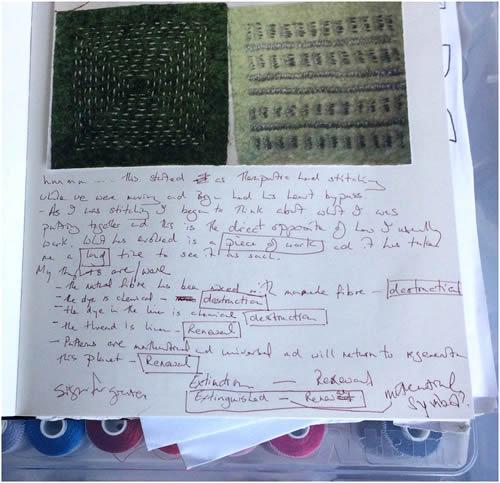 humm --- This started as Therapeutic hand stitching
while we were moving and Bryn had his heart bypass
- As I was stitching I began to think about what I was
putting together and this is the direct opposite of how I usually
work. What has evolved is a piece of work and it has taken
me a long time to see it as such.
My are / were
- the natural fibre has been mixed with manmade fibre - destruction
- the dye is chemical - destruction
- the dye in the linen is chemical destruction
- the thread is linen - Renewal
- Patterns are mathematical and universal and will return to regenerate
this planet - Renewal
Extinction — Renewal
Extinguished - Renewal